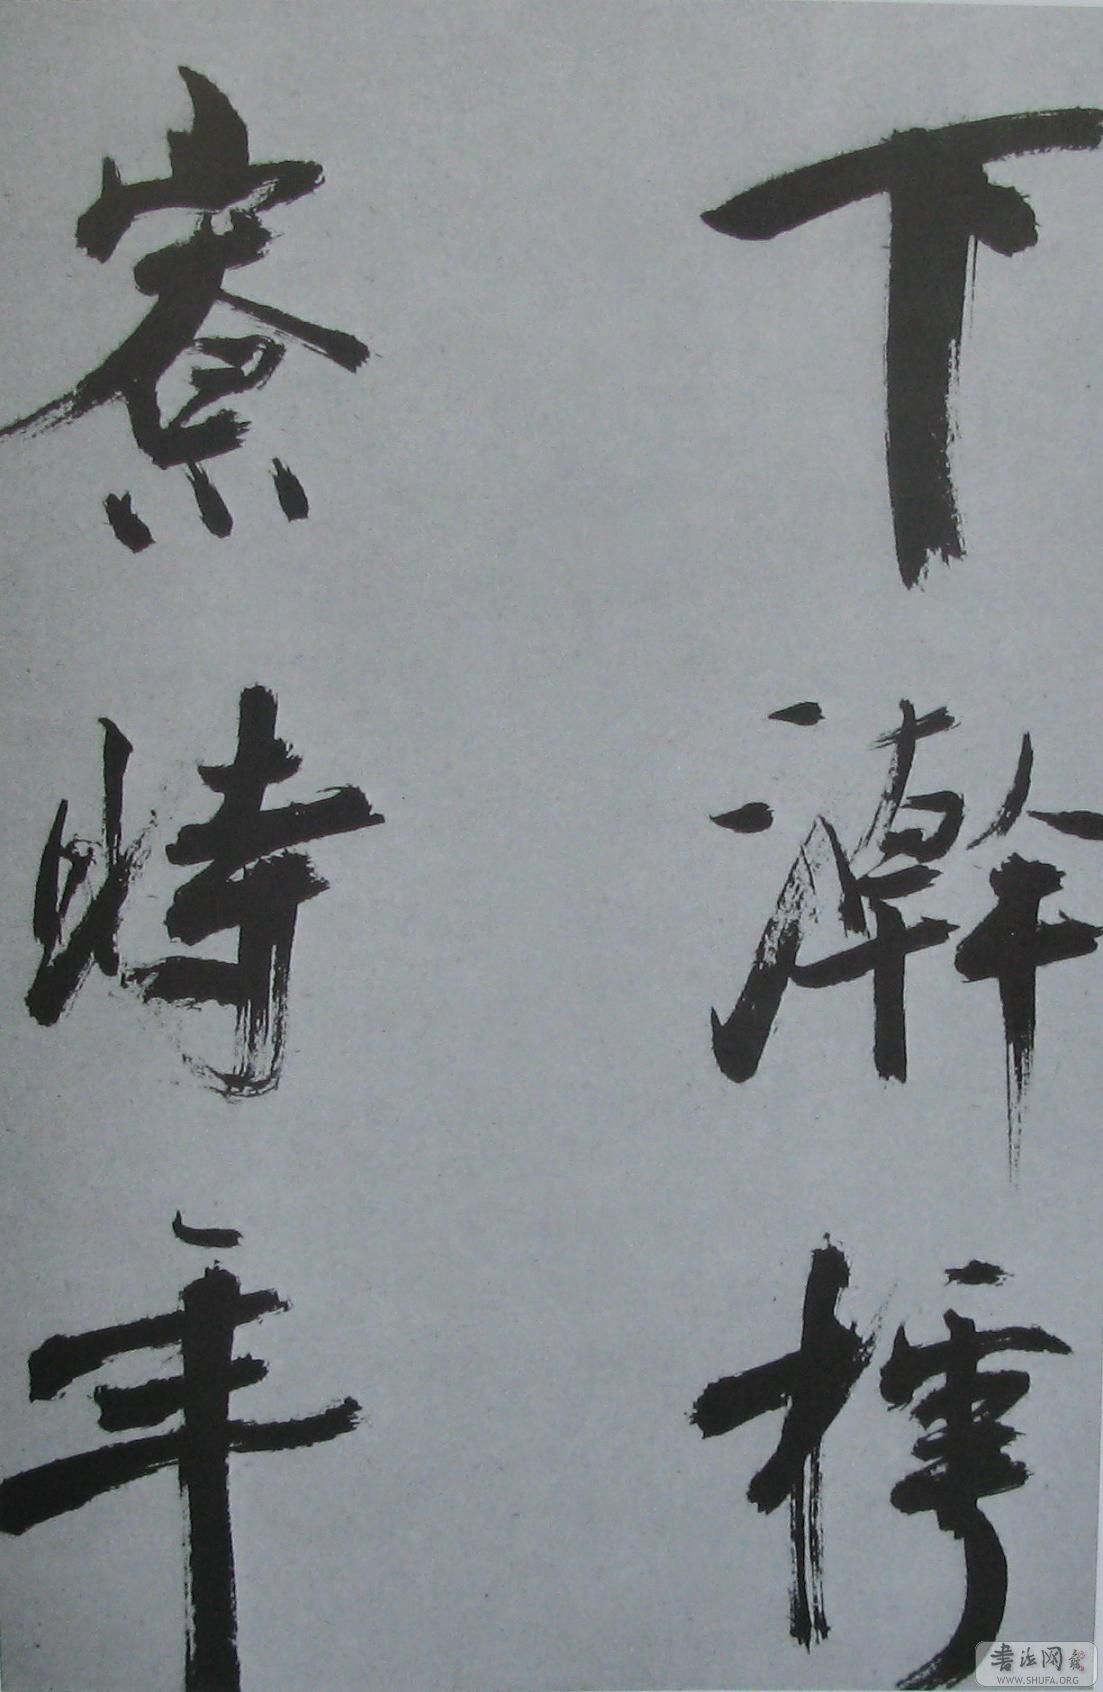 下澣樗
寮時年
書法网
WWW.SHUFA.ORG